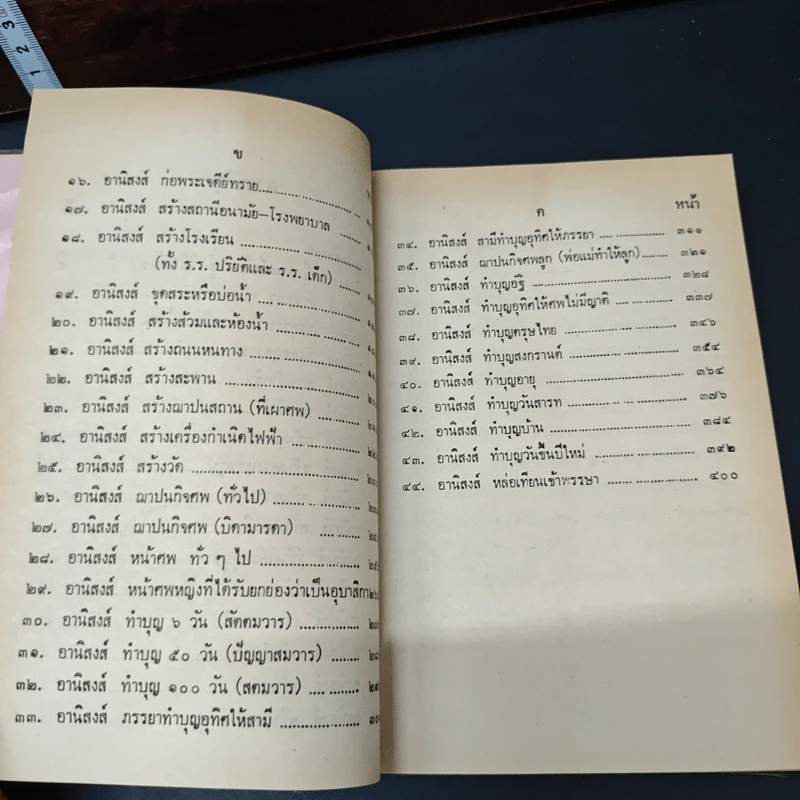 ข
๑๖. อานิสงส์ ก่อพระเจดีย์ทราย
๑๗. อานิสงส์ สร้างสถานีอนามัย–โรงพยาบาล
๑๘. อานิสงส์ สร้างโรงเรียน
(ทั้ง ร.ร. ปริยัติและ ร.ร. เด็ก)
๑๙. อานิสงส์ ขุดสระหรือบ่อน้ำ
๒๐. อานิสงส์ สร้างส้วมและห้องน้ำ
๒๑. อานิสงส์ สร้างถนนหนทาง
๒๒. อานิสงส์ สร้างสะพาน
๒๓. อานิสงส์ สร้างฌาปนสถาน (ที่เผาศพ)
๒๔. อานิสงส์ สร้างเครื่องกำเนิดไฟฟ้า
๒๕. อานิสงส์ สร้างวัด
๒๖. อานิสงส์ ฌาปนกิจศพ (ทั่วไป)
๒๗. อานิสงส์ ฌาปนกิจศพ (บิดามารดา)
๒๘. อานิสงส์ หน้าศพ ทั่ว ๆ ไป
๒๙. อานิสงส์ หน้าศพหญิงที่ได้รับยกย่องว่าเป็นอุบาสิกา
๓๐. อานิสงส์ ทำบุญ ๖ วัน (สัตตมวาร)
๓๑. อานิสงส์ ทำบุญ ๕๐ วัน (ปัญญาสมวาร)
๓๒. อานิสงส์ ทำบุญ ๑๐๐ วัน (สตมวาร)
๓๓. อานิสงส์ ภรรยาทำบุญอุทิศให้สามี
ค หน้า
๓๔. อานิสงส์ สามีทำบุญอุทิศให้ภรรยา ๓๑๑
๓๕. อานิสงส์ ฌาปนกิจศพลูก (พ่อแม่ทำให้ลูก) ๓๒๑
๓๖. อานิสงส์ ทำบุญอัฐิ ๓๒๘
๓๗. อานิสงส์ ทำบุญอุทิศให้ศพไม่มีญาติ ๓๓๗
๓๘. อานิสงส์ ทำบุญตรุษไทย ๓๔๖
๓๙. อานิสงส์ ทำบุญสงกรานต์ ๓๕๔
๔๐. อานิสงส์ ทำบุญอายุ ๓๖๔
๔๑. อานิสงส์ ทำบุญวันสารท ๓๗๖
๔๒. อานิสงส์ ทำบุญบ้าน ๓๘๔
๔๓. อานิสงส์ ทำบุญวันขึ้นปีใหม่ ๓๙๒
๔๔. อานิสงส์ หล่อเทียนเข้าพรรษา ๔๐๐
1 2 3